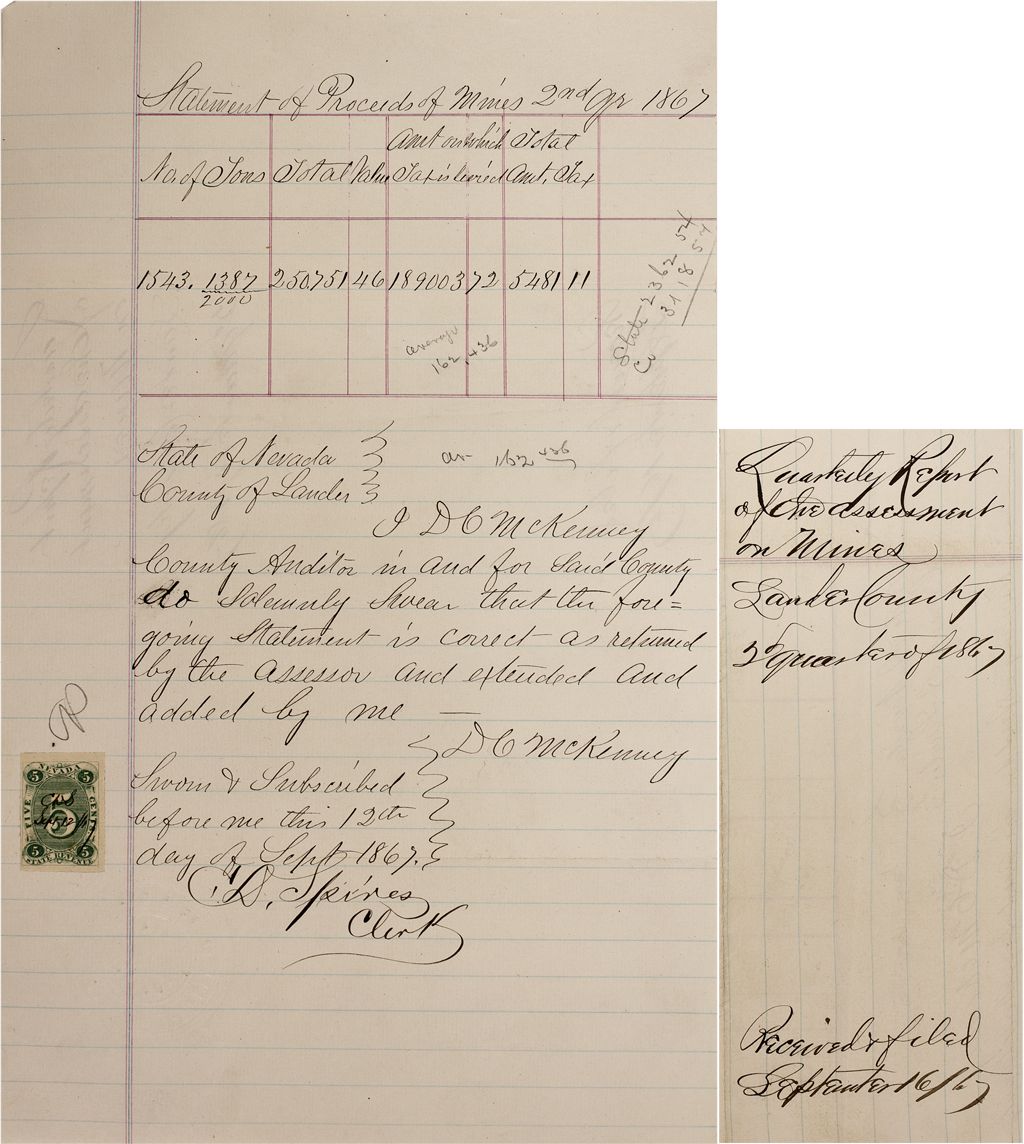 Statement of Proceeds of Mines 2nd Qr 1867
No. of Tons Total Value Amt on which Tax is levied Total Amt. Tax
1543. 1387/2000 250751 46 189003 72 5481 11
average
162.436
State 2362 54
Co 3118 57
State of Nevada
County of Lander
av 162 436
I D C McKenney
County Auditor in and for Said County
do Solemnly Swear that the fore=
going Statement is correct as returned
by the assessor and extended and
added by me —
D C McKenney
Sworn & Subscribed
before me this 12th
day of Sept 1867.
C. D. Spires
Clerk
NEVADA
5 5
FIVE 5 CENTS
CDS
Sept 12/67
5 5
STATE REVENUE
Quarterly Report
of the assessment
on Mines
Lander County
2d quarter of 1867
Received & filed
September 16/67